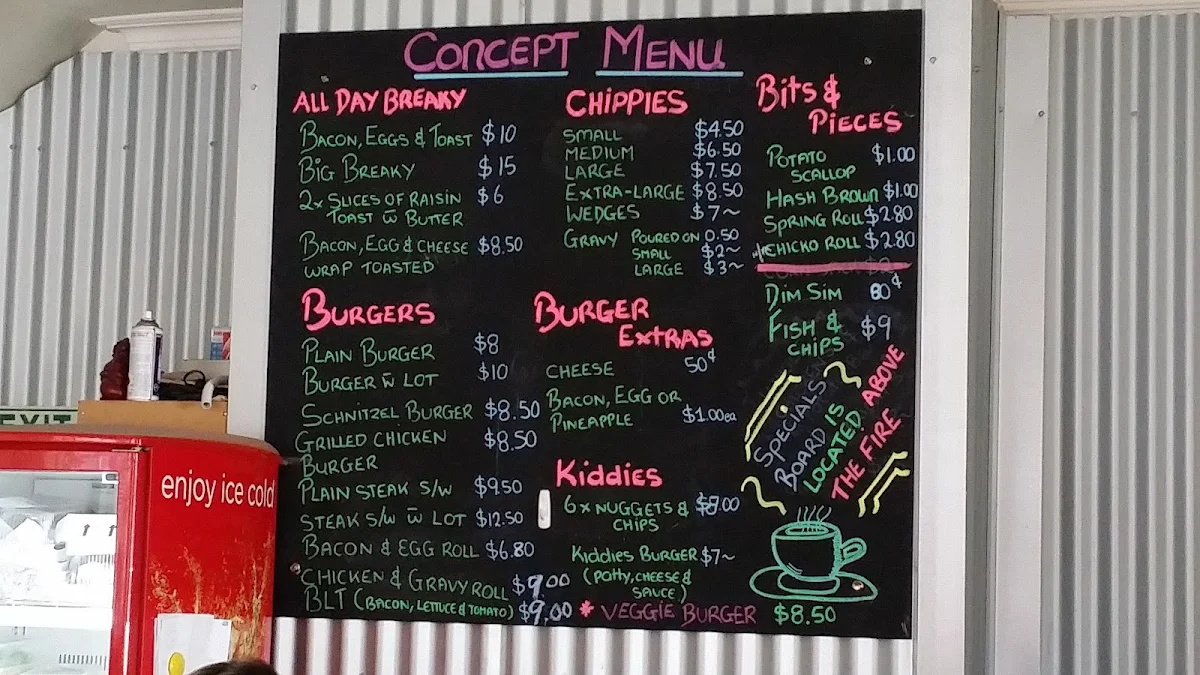 CONCEPT MENU
ALL DAY BREAKY
BACON, EGGS & TOAST $10
BIG BREAKY $15
2x SLICES OF RAISIN $6
TOAST w̄ BUTTER
BACON, EGG & CHEESE $8.50
WRAP TOASTED
BURGERS
PLAIN BURGER $8
BURGER w̄ LOT $10
SCHNITZEL BURGER $8.50
GRILLED CHICKEN $8.50
BURGER
PLAIN STEAK S/W $9.50
STEAK S/W w̄ LOT $12.50
BACON & EGG ROLL $6.80
CHICKEN & GRAVY ROLL $9.00
BLT (BACON, LETTUCE & TOMATO) $9.00
CHIPPIES
SMALL $4.50
MEDIUM $6.50
LARGE $7.50
EXTRA-LARGE $8.50
WEDGES $7~
GRAVY POURED ON 0.50
SMALL $2~
LARGE $3~
BURGER
EXTRAS
CHEESE 50¢
BACON, EGG OR
PINEAPPLE $1.00ea
Kiddies
6x NUGGETS & $8.00
CHIPS
Kiddies BURGER $7~
(patty, CHEESE &
SAUCE)
* VEGGIE BURGER $8.50
Bits &
PIECES
POTATO $1.00
SCALLOP
HASH BROWN $1.00
SPRING ROLL $2.80
CHICKO ROLL $2.80
DIM SIM 80¢
FISH & $9
CHIPS
SPECIALS
BOARD IS
LOCATED ABOVE
THE FIRE
EXIT
enjoy ice cold